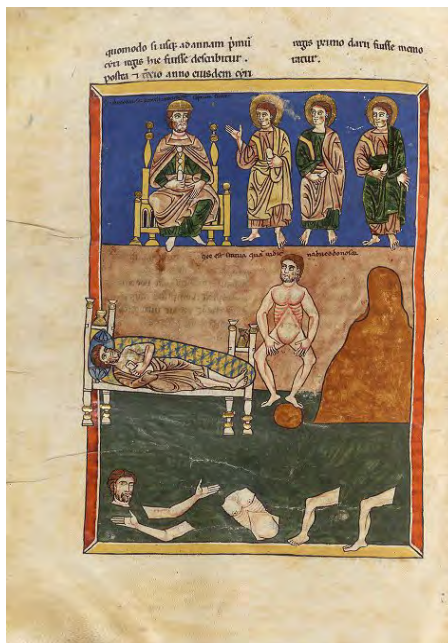 quomodo si usq; ad annam pͥmū
cyri regis hic fuisse describitur .
postea ⁊ t̄cio anno eiusdem cyri
regis primo darii fuisse memo
ratur .
hec est statua quā uidit nabucodonosor